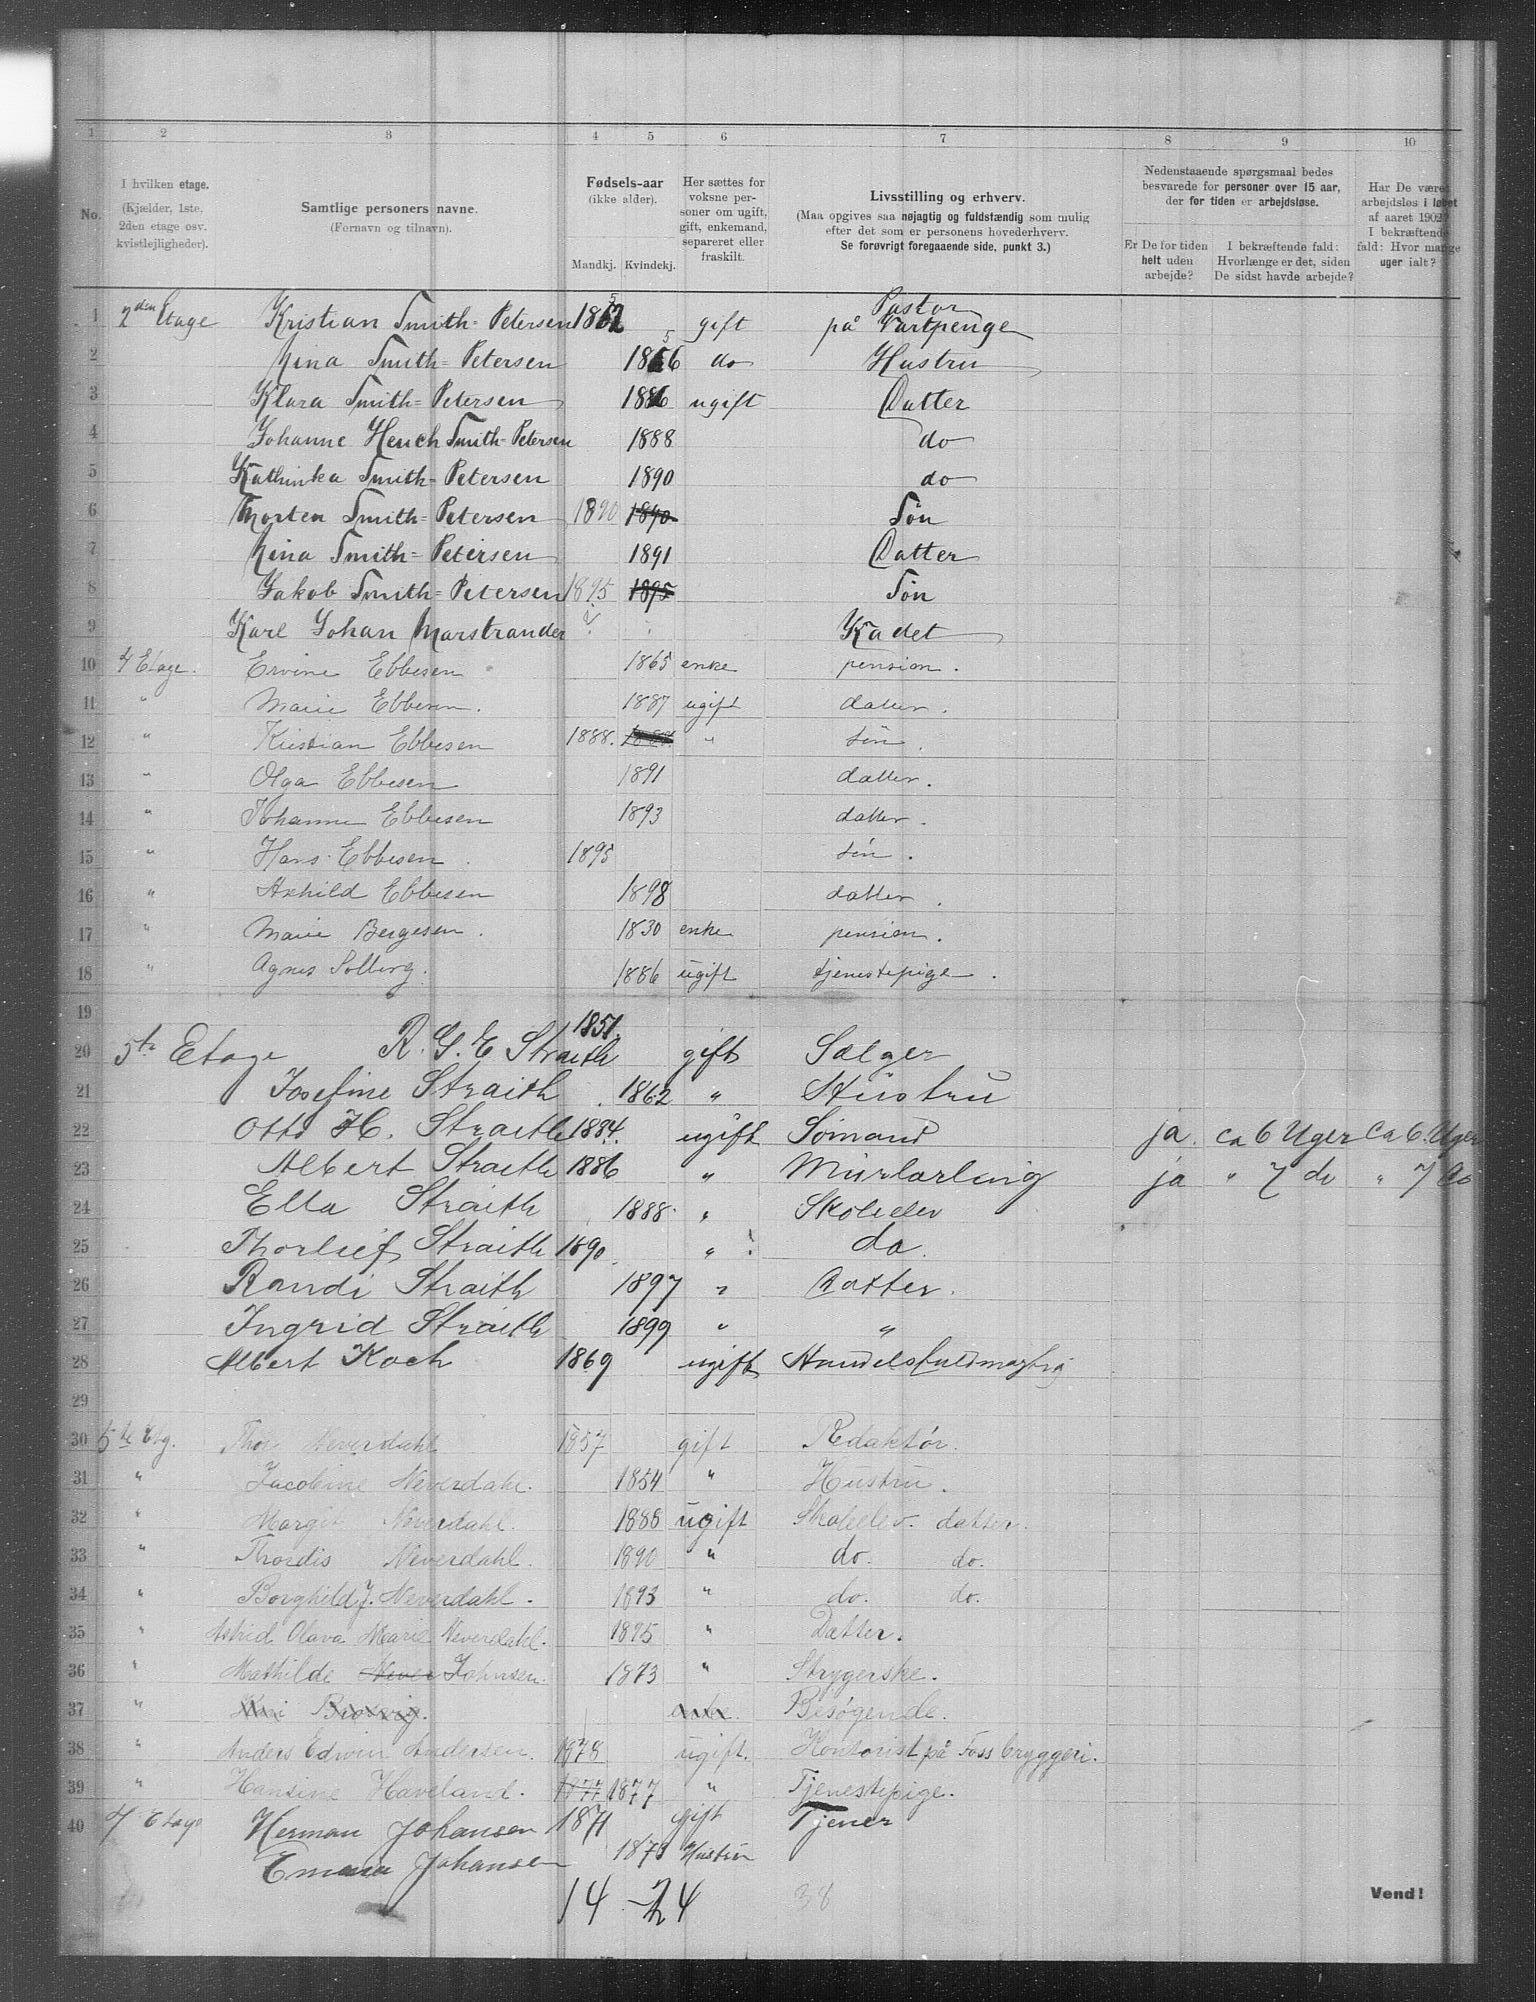 1 2 3 4 5 6 7 8 9 10
No.
I hvilken etage.
(Kjælder, 1ste,
2den etage osv.
kvistlejligheder).
Samtlige personers navne.
(Fornavn og tilnavn).
Fødsels-aar
(ikke alder).
Mandkj. Kvindekj.
Her sættes for
voksne per-
soner om ugift,
gift, enkemand,
separeret eller
fraskilt.
Livsstilling og erhverv.
(Maa opgives saa nøjagtig og fuldstændig som mulig
efter det som er personens hovederhverv.
Se forøvrigt foregaaende side, punkt 3.)
Nedenstaaende spørgsmaal bedes
besvarede for personer over 15 aar,
der for tiden er arbejdsløse.
Er De for tiden
helt uden
arbejde?
I bekræftende fald:
Hvorlænge er det, siden
De sidst havde arbejde?
Har De været
arbejdsløs i løbet
af aaret 1902?
I bekræftende
fald: Hvor mange
uger ialt?
1 2den Etage Kristian Smith-Petersen 1852 gift Pastor på Vartpenge
2 Nina Smith-Petersen 1856 do Hustru
3 Klara Smith-Petersen 1886 ugift Datter
4 Johanne Heuch Smith-Petersen 1888 do
5 Kathinka Smith-Petersen 1890 do
6 Morten Smith-Petersen 1890 1890 Søn
7 Nina Smith-Petersen 1891 Datter
8 Jakob Smith-Petersen 1895 1895 Søn
9 Karl Johan Marstrander ? Kadet
10 4 Etage. Ervine Ebbesen 1865 enke pension.
11 " Marie Ebbesen. 1887 ugift datter.
12 " Kristian Ebbesen 1888. " søn.
13 " Olga Ebbesen 1891 datter.
14 " Johanne Ebbesen 1893 datter.
15 " Hans Ebbesen. 1895 søn.
16 " Axhild Ebbesen 1898 datter.
17 " Marie Bergesen. 1830 enke pension.
18 " Agnes Solberg. 1886 ugift tjenestepige.
19
20 5te Etage R. G. E Straith 1851. gift Sælger
21 Josefine Straith 1862 " Hustru
22 Otto H. Straith 1884. ugift Sømand ja. ca 6 Uger ca 6. Uger
23 Albert Straith 1886 " Murlærling ja " 7 do " 7 do
24 Ella Straith 1888 " Skolelev
25 Thorleif Straith 1890. " do.
26 Randi Straith 1897 " Datter.
27 Ingrid Straith 1899 " "
28 Albert Koch 1869 ugift Handelsfuldmægtig
29
30 5te Etg. Thor Neverdahl 1857 gift Redaktør.
31 " Jacobine Neverdahl. 1854 " Hustru.
32 " Margit Neverdahl. 1888 ugift Skolelev. datter.
33 " Thordis Neverdahl. 1890 " do. do.
34 " Borghild J. Neverdahl. 1893 " do. do.
35 " Astrid Olava Marie Neverdahl. 1895 " Datter.
36 " Mathilde Never Johnsen. 1873 " Strygerske.
37 " enke. Besøgende.
38 " Anders Edwin Andersen. 1878 ugift. Kontorist på Foss bryggeri.
39 " Hansine Haveland. 1877 1877 " Tjenestepige.
40 4 Etage Herman Johansen 1871 gift Tjener
Emma Johansen Hustru
14 - 24 38
Vend!